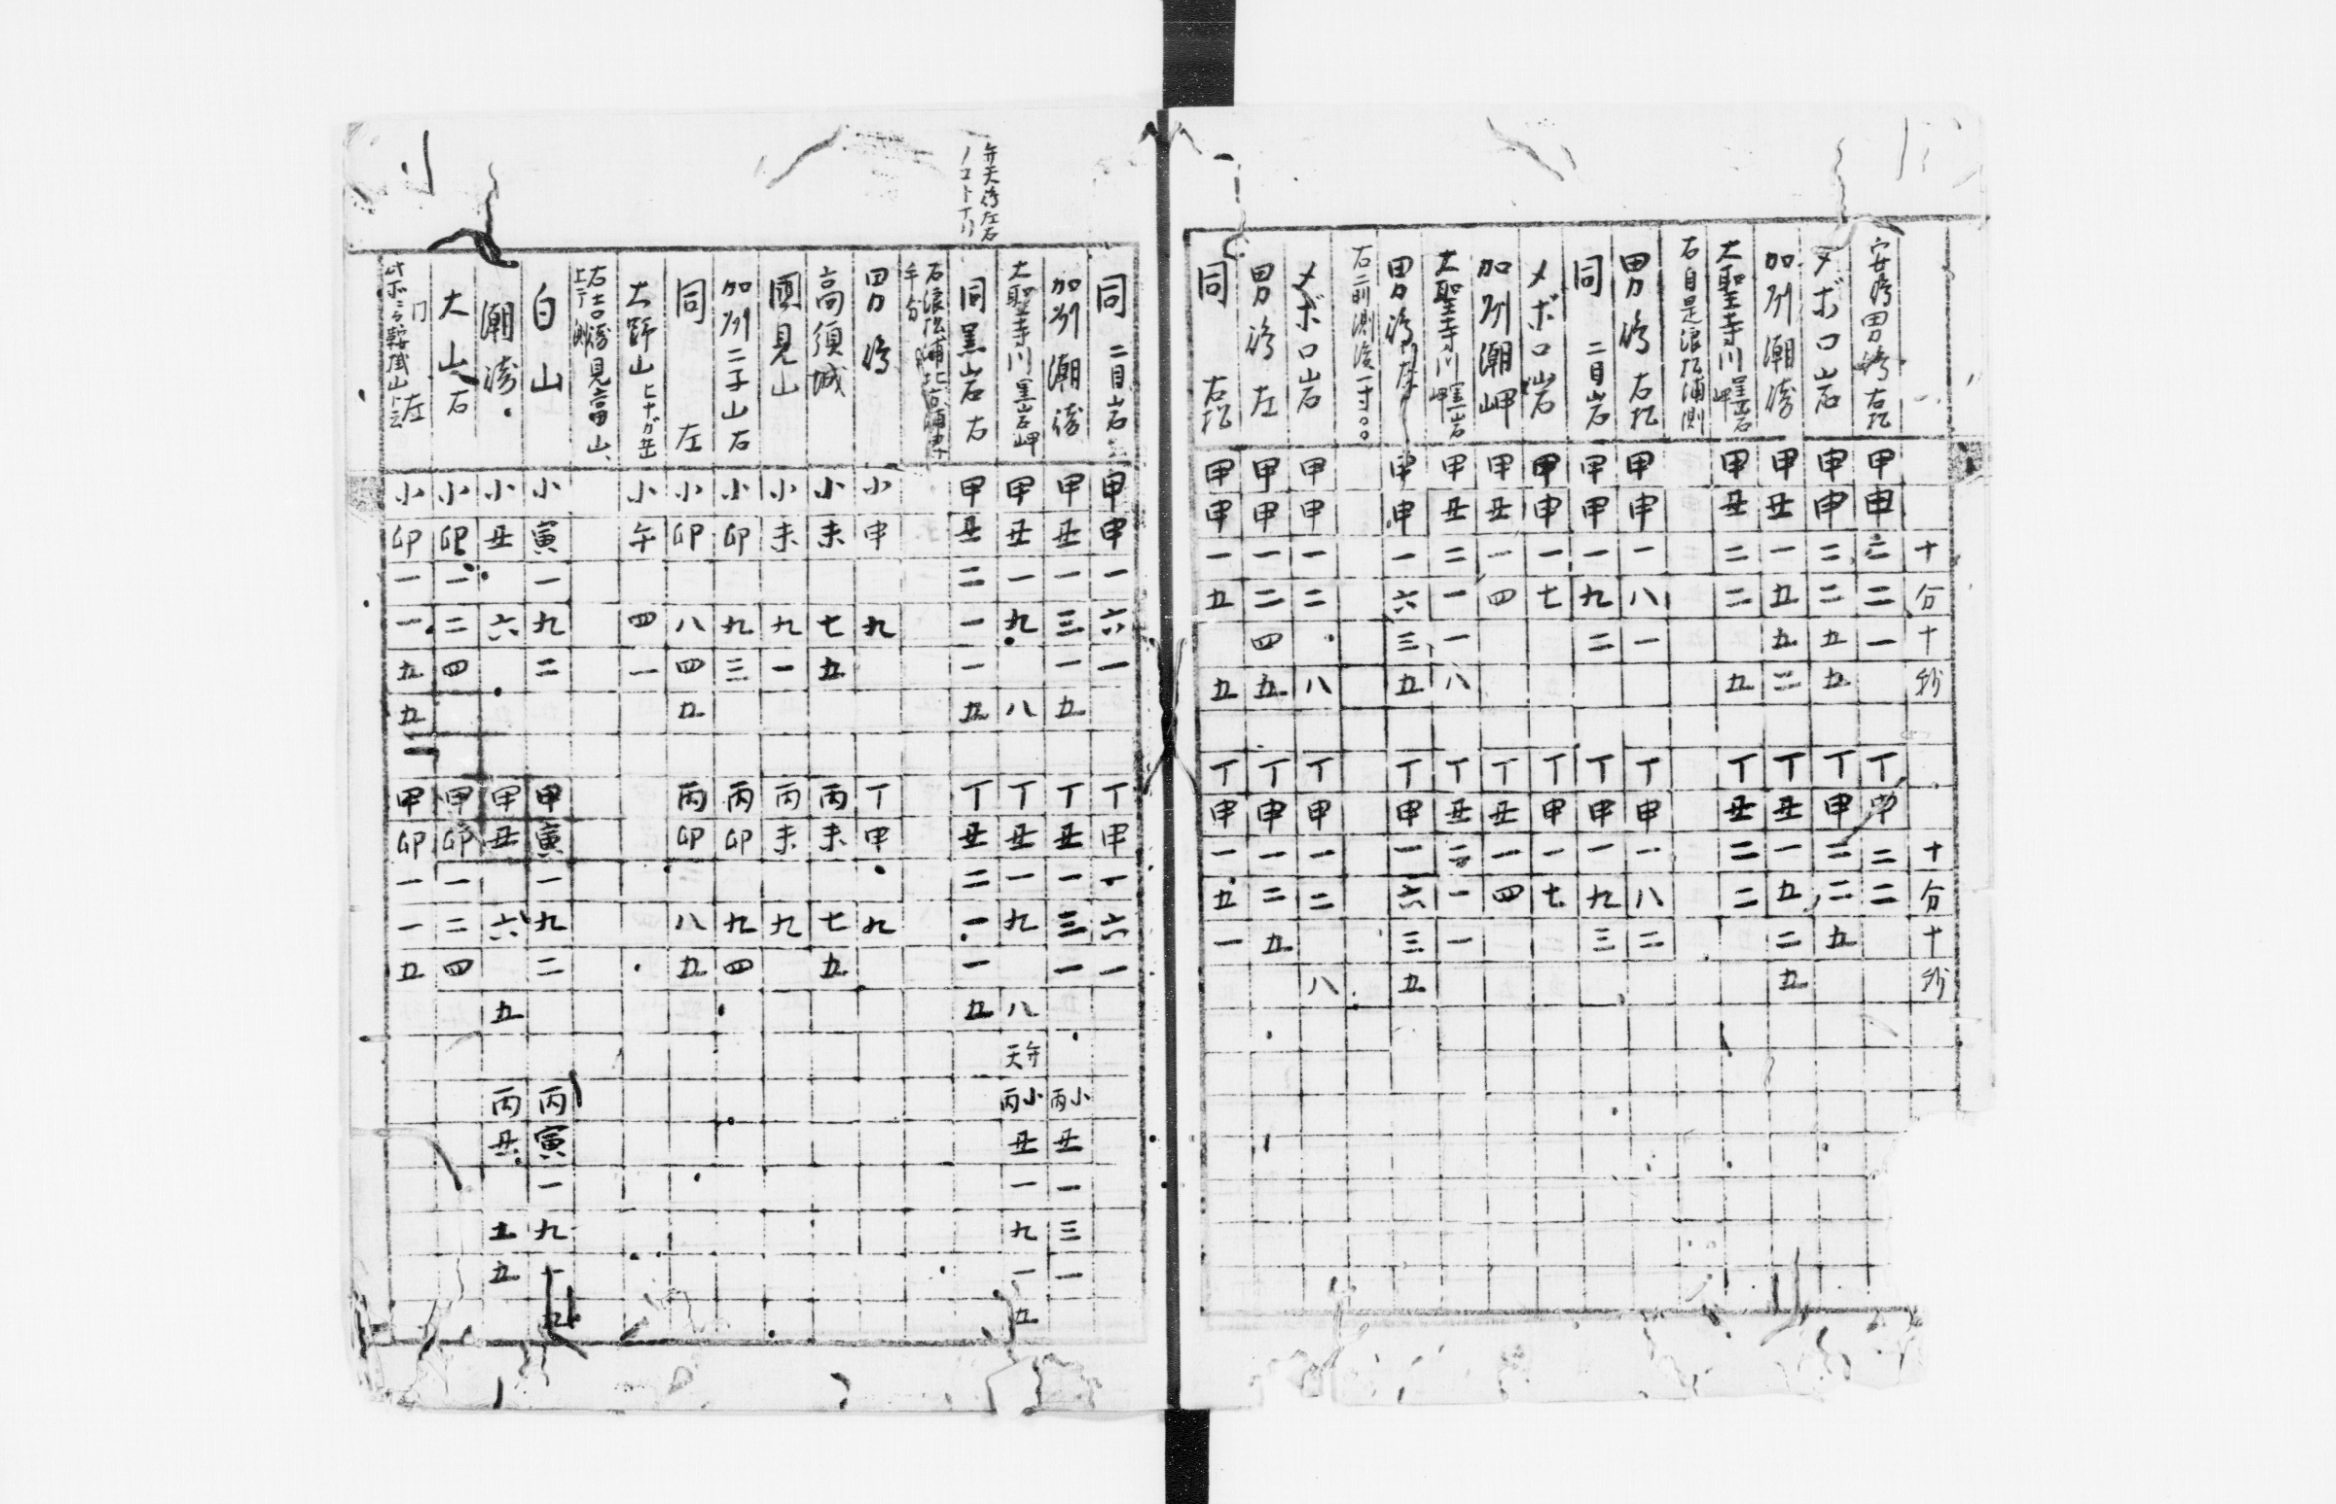 十 分 十 秒 十 分 十 秒
安嶋男嶋右払 甲 申 二 二 一 丁 申 二 二
メボロ岩 申 申 二 二 五 五 丁 申 二 二 五
加州潮 甲 丑 一 五 五 二 丁 丑 一 五 二 五
大聖寺川黒岩岬 甲 丑 二 二 五 丁 丑 二 二
右自是浪松浦測
男嶋右払 甲 申 一 八 一 丁 申 一 八 二
同二目岩 甲 甲 一 九 二 丁 申 一 九 三
メボロ岩 甲 申 一 七 丁 申 一 七
加州潮岬 甲 丑 一 四 丁 丑 一 四
大聖寺川黒岩岬 甲 丑 二 一 一 八 丁 丑 二 一 一
男嶋 甲 申 一 六 三 五 丁 申 一 六 三 五
メボロ岩 甲 甲 一 二 八 丁 甲 一 二 八
男嶋左 甲 甲 一 二 四 五 丁 申 一 二 五
同右払 甲 申 一 五 五 丁 申 一 五 一
弁天嶋左右
同二目岩 甲 申 一 六 一 丁 甲 一 六 一
加州潮 甲 丑 一 三 一 五 丁 丑 一 三 一 小丙 丑 一 三 一
大聖寺川黒岩岬 甲 丑 一 九 八 丁 丑 一 九 八 弁天 小丙 丑 一 九 一 五
同黒岩右 甲 丑 二 一 一 五 丁 丑 二 一 一 五
男嶋 小 申 九 丁 甲 九
高須城 小 未 七 五 丙 未 七 五
國見山 小 未 九 一 丙 未 九
加州二子山右 小 卯 九 三 丙 卯 九 四
同左 小 卯 八 四 五 丙 卯 八 五
大野山 小 午 四 一
白山 小 寅 一 九 二 甲 寅 一 九 二 丙 寅 一 九
潮 小 丑 六 甲 丑 六 五 丙 丑 五 五
大山右 小 卯 一 二 四 甲 卯 一 二 四
左 小 卯 一 一 五 五 甲 卯 一 一 五